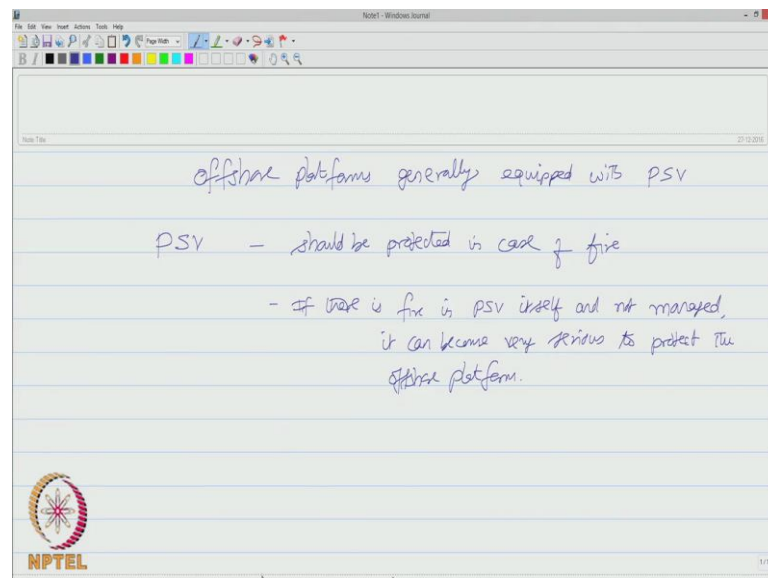 Note1 - Windows Journal
File Edit View Insert Actions Tools Help
Page Width
B I
Note Title
27-12-2016
offshore platforms generally equipped with PSV
PSV - should be protected in case of fire
- If there is fire in PSV itself and not managed,
it can become very serious to protect the
offshore platform.
NPTEL
1/1